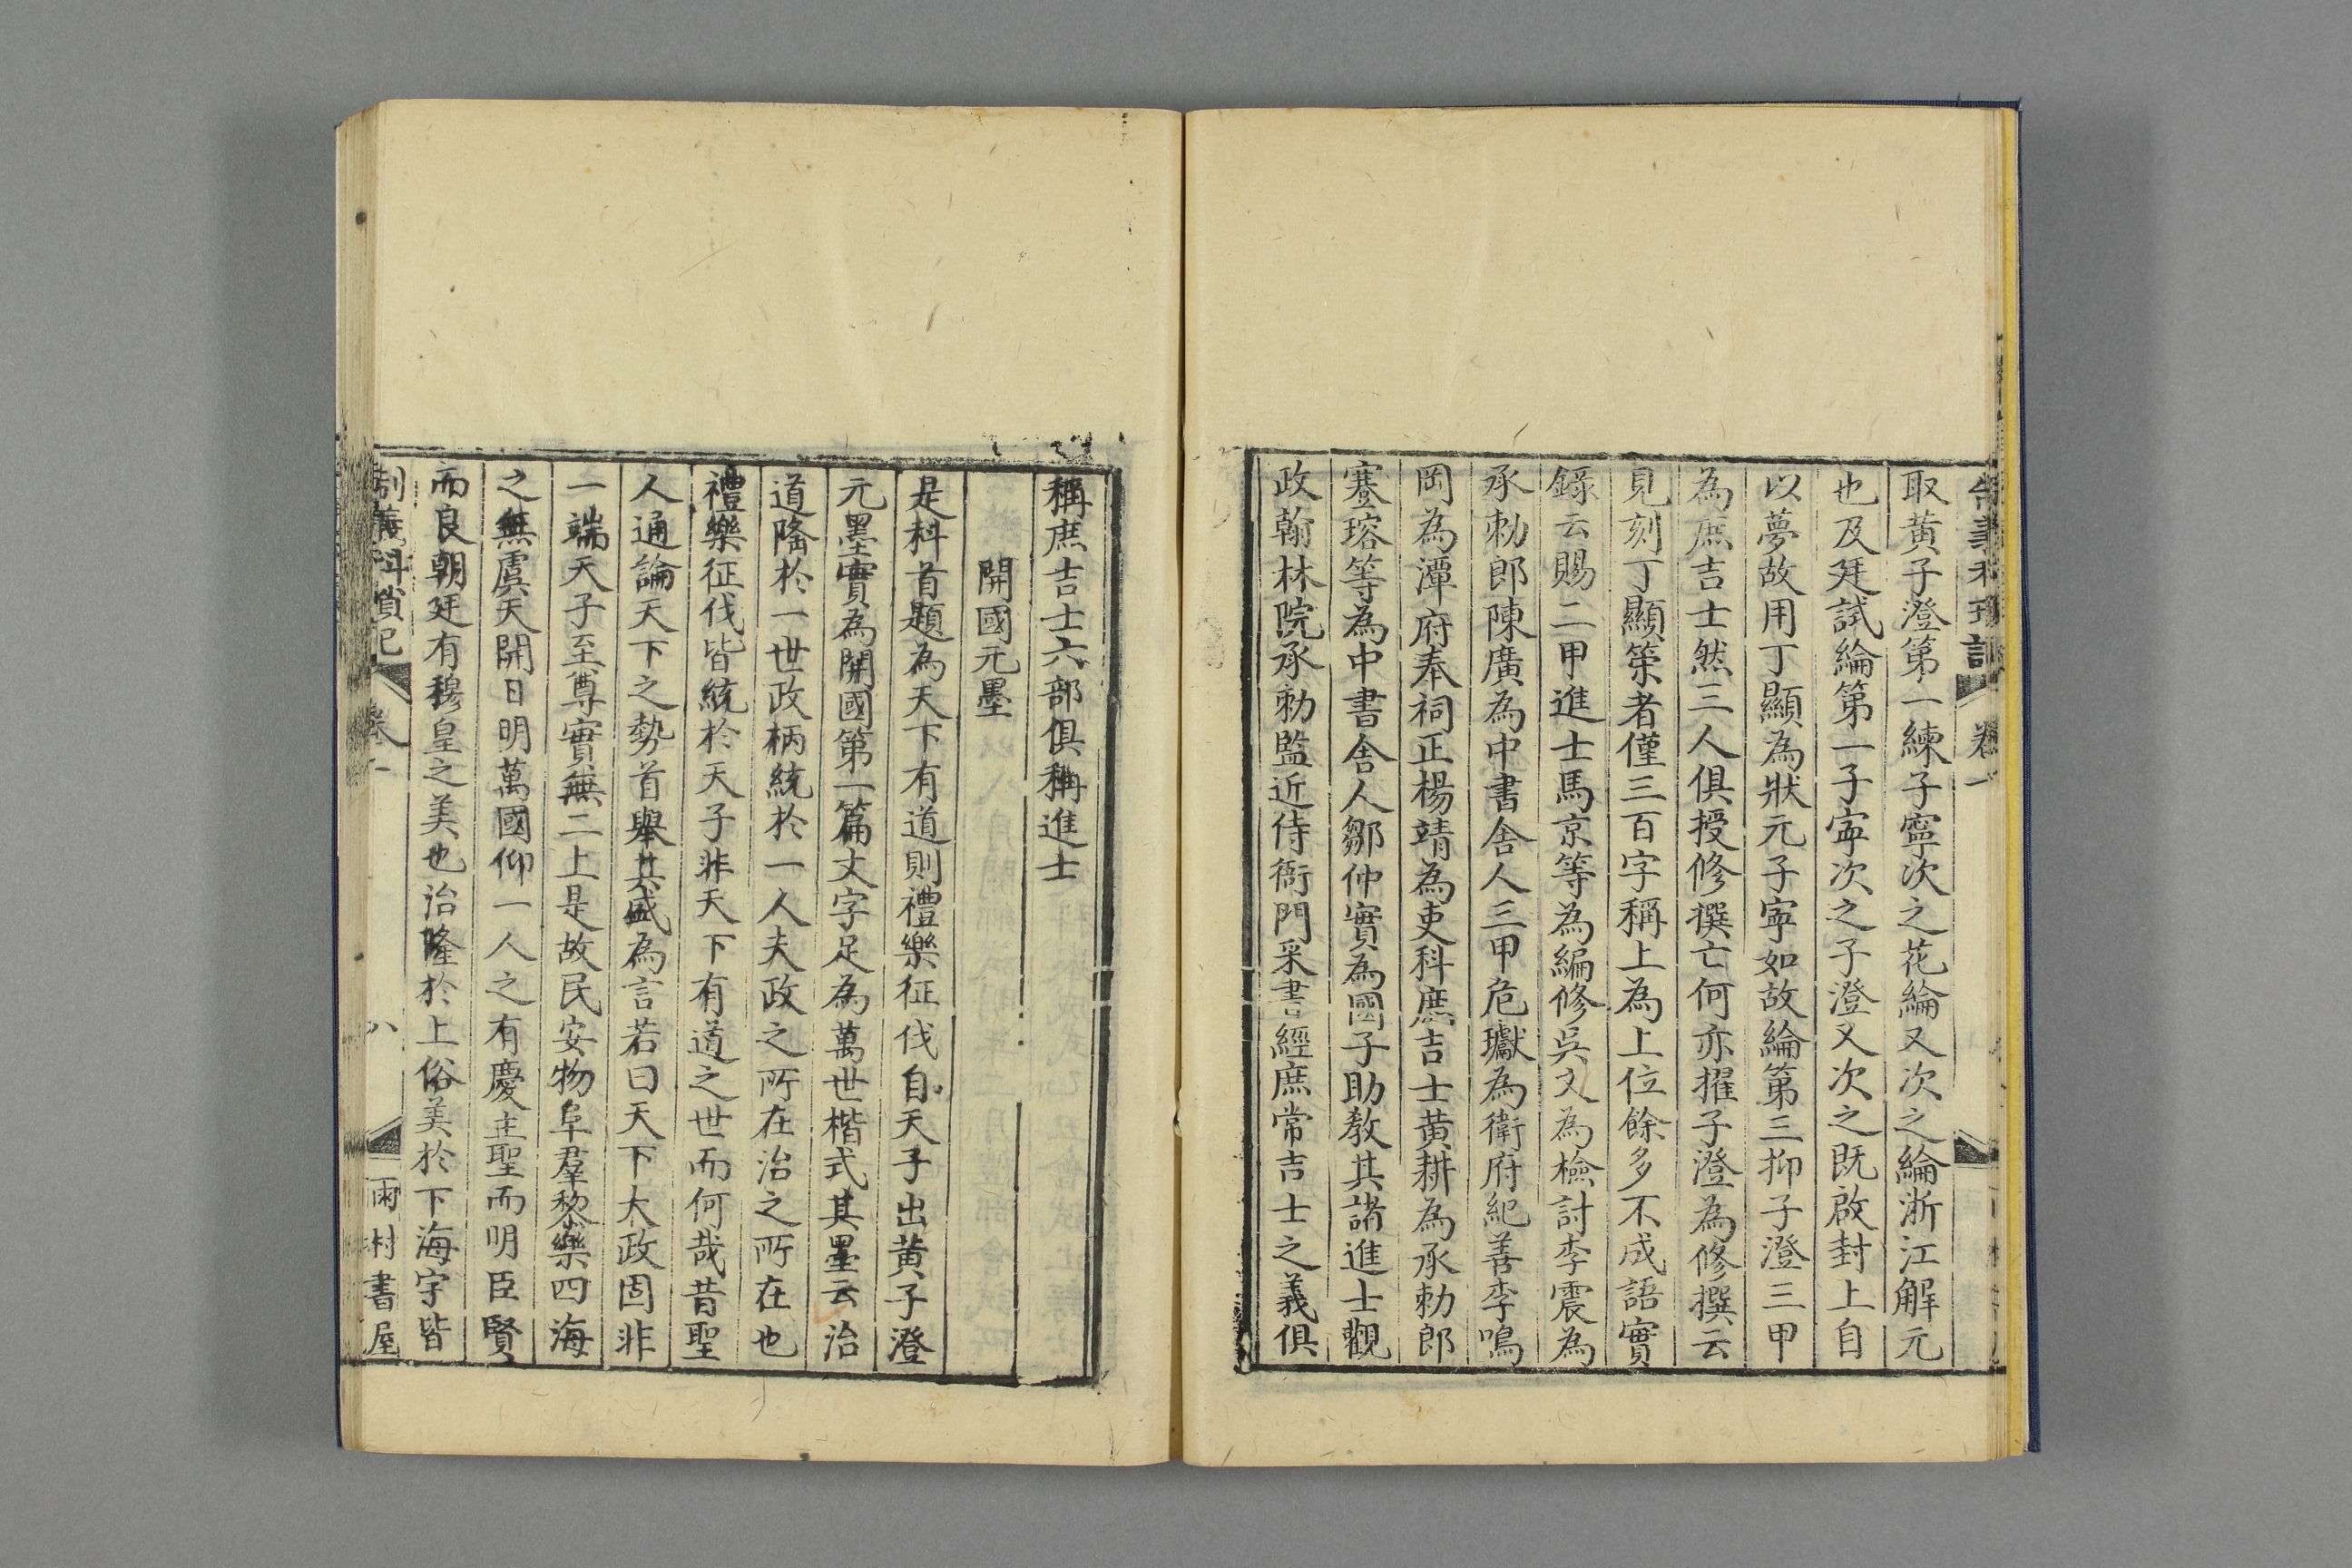 取黃子澄第一練子寧次之花綸又次之綸浙江解元
也及廷試綸第一子寧次之子澄又次之既啟封上自
以夢故用丁顯為狀元子寧如故綸第三抑子澄三甲
為庶吉士然三人俱授修撰亡何亦擢子澄為修撰云
見刻丁顯策者僅三百字稱上為上位餘多不成語實
錄云賜二甲進士馬京等為編修吳文為檢討李震為
承勅郎陳廣為中書舍人三甲危瓛為衛府紀善李鳴
岡為潭府奉祠正楊靖為吏科庶吉士黃耕為承勅郎
蹇瑢等為中書舍人鄒仲實為國子助教其諸進士觀
政翰林院承勅監近侍衙門采書經庶常吉士之義俱
稱庶吉士六部俱稱進士
開國元墨
是科首題為天下有道則禮樂征伐自天子出黃子澄
元墨實為開國第一篇文字足為萬世楷式其墨云治
道隆於一世政柄統於一人夫政之所在治之所在也
禮樂征伐皆統於天子非天下有道之世而何哉昔聖
人通論天下之勢首舉其盛為言若曰天下大政固非
一端天子至尊實無二上是故民安物阜羣黎樂四海
之無虞天開日明萬國仰一人之有慶主聖而明臣賢
而良朝廷有穆皇之美也治隆於上俗美於下海宇皆
制義科瑣記 卷一 八 雨村書屋